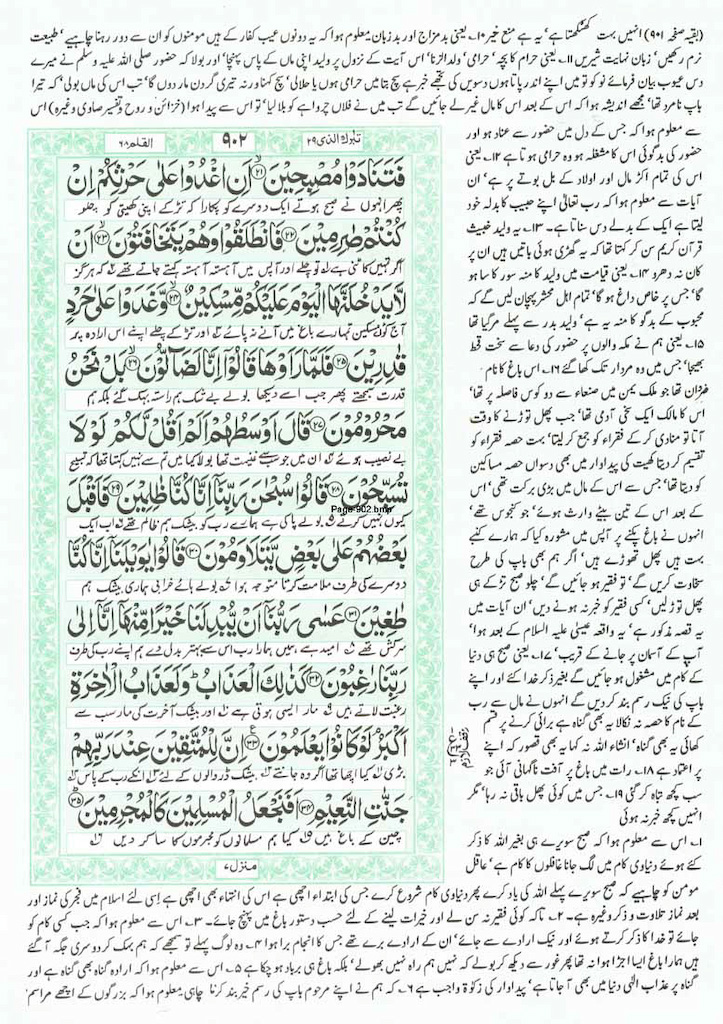 (بقیہ صفحہ ۹۰۱) انہیں بہت کھٹکتا ہے' یہ ہے منع خیر ۱۰۔ یعنی بد مزاج اور بد زبان معلوم ہوا کہ یہ دونوں عیب کفار کے ہیں مومنوں کو ان سے دور رہنا چاہیے' طبیعت
نرم رکھیں' زبان نہایت شیریں ۱۱۔ یعنی حرام کا بچہ' حرامی' ولد الزنا' اس آیت کے نزول پر ولید اپنی ماں کے پاس پہنچا' اور بولا کہ حضور صلی اللہ علیہ وسلم نے میرے
دس عیوب بیان فرمائے نو کو تو میں اپنے اندر پاتا ہوں دسویں کی تجھے خبر ہے سچ بتا میں حرامی ہوں یا حلالی' سچ کہنا ورنہ تیری گردن مار دوں گا' تب اس کی ماں بولی' کہ تیرا
باپ نامرد تھا' مجھے اندیشہ ہوا کہ اس کے بعد اس کا مال غیر لے جائیں گے تب میں نے فلاں چرواہے کو بلا لیا' تو اس سے پیدا ہوا (خزائن و روح و تفسیر صاوی وغیرہ) اس
سے معلوم ہوا کہ جس کے دل میں حضور سے عناد ہو اور
حضور کی بدگوئی اس کا مشغلہ ہو وہ حرامی ہوتا ہے ۱۲۔ یعنی
اس کی تمام اکڑ مال اور اولاد کے بل بوتے پر ہے' ان
آیات سے معلوم ہوا کہ رب تعالیٰ اپنے حبیب کا بدلہ خود
لیتا ہے ایک کے بدلے دس سناتا ہے۔ ۱۳۔ یہ ولید خبیث
قرآن کریم سن کر کہتا تھا کہ یہ گھڑی ہوئی باتیں ہیں ان پر
کان نہ دھرو ۱۴۔ یعنی قیامت میں ولید کا منہ سور کا سا ہو
گا' جس پر خاص داغ ہو گا' تمام اہل محشر پہچان لیں گے کہ
محبوب کے بدگو کا منہ یہ ہے' ولید بدر سے پہلے مر گیا تھا
۱۵۔ یعنی ہم نے مکہ والوں پر حضور کی دعا سے سخت قحط
بھیجا' جس میں وہ مردار تک کھا گئے ۱۶۔ اس باغ کا نام
تھا جو ملک یمن میں صنعاء سے دو کوس فاصلہ پر تھا'
اس کا مالک ایک سخی آدمی تھا' جب پھل توڑنے کا وقت
آتا تو منادی کر کے فقراء کو جمع کر لیتا' بہت حصہ فقراء کو
تقسیم کر دیتا کھیت کی پیداوار میں بھی دسواں حصہ مساکین
کو دیتا تھا' جس سے اس کے مال میں بڑی برکت تھی' اس
کے بعد اس کے تین بیٹے وارث ہوئے' جو کنجوس تھے'
انہوں نے باغ پکنے پر آپس میں مشورہ کیا کہ ہمارے کنبے
بہت ہیں پھل تھوڑے ہیں' اگر ہم بھی باپ کی طرح
سخاوت کریں گے' تو فقیر ہو جائیں گے' چلو صبح تڑکے ہی
پھل توڑ لیں' کسی فقیر کو خبر نہ ہونے دیں' ان آیات میں
یہ قصہ مذکور ہے' یہ واقعہ عیسیٰ علیہ السلام کے بعد ہوا'
آپ کے آسمان پر جانے کے قریب' ۱۷۔ یعنی صبح ہی دنیا
کے کام میں مشغول ہو جائیں گے بغیر ذکر خدا کئے اور اپنے
باپ کی نیک رسم بند کر دیں گے انہوں نے مال سے رب
کے نام کا حصہ نہ نکالا یہ بھی گناہ ہے برائی کرنے پر قسم
کھائی یہ بھی گناہ' انشاء اللہ نہ کہا یہ بھی قصور کہ اپنے
پر اعتماد ہے ۱۸۔ رات میں باغ پر آفت ناگہانی آئی جو
سب کچھ تباہ کر گئی ۱۹۔ جس میں کوئی پھل باقی نہ رہا' مگر
انہیں کچھ خبر نہ ہوئی
۱۔ اس سے معلوم ہوا کہ صبح سویرے ہی بغیر اللہ کا ذکر
کئے ہوئے دنیاوی کام میں لگ جانا غافلوں کا کام ہے' عاقل
تبارك الذی ۲۹
۹۰۲
القلم ۶۸
فَتَنَادَوْا مُصْبِحِيْنَ ۲۱ اَنِ اغْدُوْا عَلٰى حَرْثِكُمْ اِنْ
پھر انہوں نے صبح ہوتے ایک دوسرے کو پکارا کہ تڑکے اپنی کھیتی کو چلو
كُنْتُمْ صٰرِمِيْنَ ۲۲ فَانْطَلَقُوْا وَهُمْ يَتَخَافَتُوْنَ ۲۳ اَنْ
اگر تمہیں کاٹنی ہے تو چلے اور آپس میں آہستہ آہستہ کہتے جاتے تھے کہ ہرگز
لَّا يَدْخُلَنَّهَا الْيَوْمَ عَلَيْكُمْ مِّسْكِيْنٌ ۲۴ وَّغَدَوْا عَلٰى حَرْدٍ
آج کوئی مسکین تمہارے باغ میں آنے نہ پائے اور تڑکے چلے اپنے اس ارادہ پر
قٰدِرِيْنَ ۲۵ فَلَمَّا رَاَوْهَا قَالُوْا اِنَّا لَضَآلُّوْنَ ۲۶ بَلْ نَحْنُ
قدرت سمجھتے پھر جب اسے دیکھا بولے بے شک ہم راستہ بہک گئے بلکہ ہم
مَحْرُوْمُوْنَ ۲۷ قَالَ اَوْسَطُهُمْ اَلَمْ اَقُلْ لَّكُمْ لَوْ لَا
بے نصیب ہوئے ان میں جو سب سے غنیمت تھا بولا کیا میں تم سے نہیں کہتا تھا کہ تسبیح
تُسَبِّحُوْنَ ۲۸ قَالُوْا سُبْحٰنَ رَبِّنَا اِنَّا كُنَّا ظٰلِمِيْنَ ۲۹ فَاَقْبَلَ
Page-902.bmp
کیوں نہیں کرتے بولے پاکی ہے ہمارے رب کو بیشک ہم ظالم تھے اب ایک
بَعْضُهُمْ عَلٰى بَعْضٍ يَّتَلَاوَمُوْنَ ۳۰ قَالُوْا يٰوَيْلَنَا اِنَّا كُنَّا
دوسرے کی طرف ملامت کرتا متوجہ ہوا بولے ہائے خرابی ہماری بیشک ہم
طٰغِيْنَ ۳۱ عَسٰى رَبُّنَا اَنْ يُّبْدِلَنَا خَيْرًا مِّنْهَا اِنَّا اِلٰى
سرکش تھے امید ہے ہمیں ہمارا رب اس سے بہتر بدل دے ہم اپنے رب کی طرف
رَبِّنَا رٰغِبُوْنَ ۳۲ كَذٰلِكَ الْعَذَابُ وَلَعَذَابُ الْاٰخِرَةِ
رغبت لاتے ہیں مار ایسی ہوتی ہے اور بیشک آخرت کی مار سب سے
اَكْبَرُ لَوْ كَانُوْا يَعْلَمُوْنَ ۳۳ اِنَّ لِلْمُتَّقِيْنَ عِنْدَ رَبِّهِمْ
بڑی کیا اچھا تھا اگر وہ جانتے بیشک ڈر والوں کے لئے انکے رب کے پاس
جَنّٰتِ النَّعِيْمِ ۳۴ اَفَنَجْعَلُ الْمُسْلِمِيْنَ كَالْمُجْرِمِيْنَ ۳۵
چین کے باغ ہیں کیا ہم مسلمانوں کو مجرموں کا سا کر دیں
منزل ۷
مومن کو چاہیے کہ صبح سویرے پہلے اللہ کی یاد کرے پھر دنیاوی کام شروع کرے جس کی ابتداء اچھی ہے اس کی انتہاء بھی اچھی ہے اسی لئے اسلام میں فجر کی نماز اور
بعد نماز تلاوت و ذکر وغیرہ ہے۔ ۲۔ تاکہ کوئی فقیر نہ سن لے اور خیرات لینے کے لئے حسب دستور باغ میں پہنچ جائے۔ ۳۔ اس سے معلوم ہوا کہ جب کسی کام کو
جائے تو خدا کا ذکر کرتے ہوئے اور نیک ارادے سے جائے' ان کے ارادے برے تھے جس کا انجام برا ہوا ۴۔ وہ لوگ پہلے تو سمجھے کہ ہم بہک کر دوسری جگہ آ گئے
ہیں ہمارا باغ ایسا اجڑا ہوا نہ تھا پھر غور سے دیکھ کر بولے کہ نہیں ہم راہ نہیں بھولے' بلکہ باغ ہی برباد ہو چکا ہے ۵۔ اس سے معلوم ہوا کہ ارادہ گناہ بھی گناہ ہے اور
گناہ پر عذاب الٰہی دنیا میں بھی آ جاتا ہے' پیداوار کی زکوٰۃ واجب ہے ۶۔ کہ ہم نے اپنے مرحوم باپ کی رسم خیر بند کرنا چاہی معلوم ہوا کہ بزرگوں کے اچھے مراسم